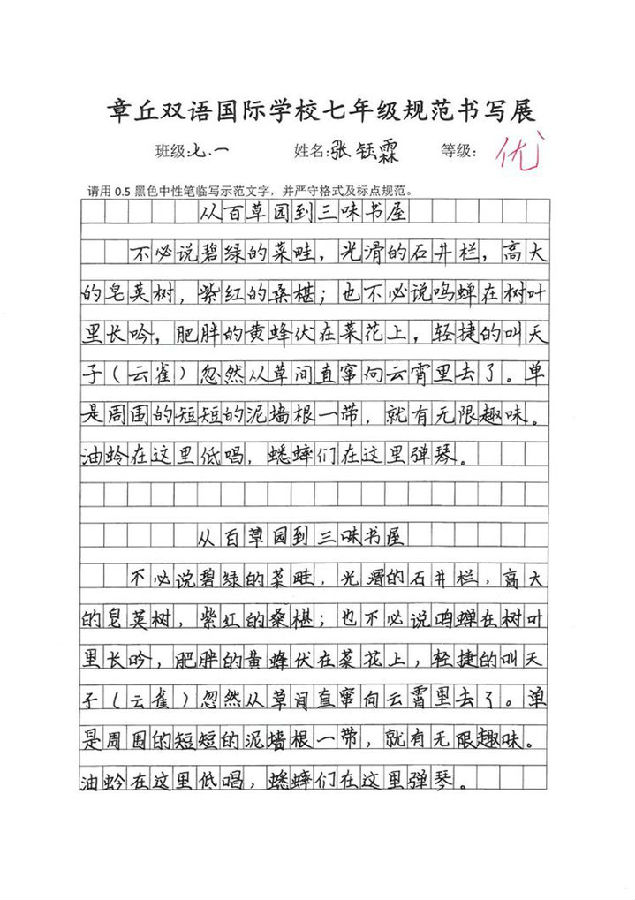 章丘双语国际学校七年级规范书写展
班级:七.一 姓名:张钰霖 等级: 优
请用 0.5 黑色中性笔临写示范文字，并严守格式及标点规范。
从百草园到三味书屋
不必说碧绿的菜畦，光滑的石井栏，高大
的皂荚树，紫红的桑椹；也不必说鸣蝉在树叶
里长吟，肥胖的黄蜂伏在菜花上，轻捷的叫天
子（云雀）忽然从草间直窜向云霄里去了。单
是周围的短短的泥墙根一带，就有无限趣味。
油蛉在这里低唱，蟋蟀们在这里弹琴。
从百草园到三味书屋
不必说碧绿的菜畦，光滑的石井栏，高大
的皂英树，紫红的桑椹；也不必说鸣蝉在树叶
里长吟，肥胖的黄蜂伏在菜花上，轻捷的叫天
子（云雀）忽然从草间直窜向云霄里去了。单
是周围的短短的泥墙根一带，就有无限趣味。
油蛉在这里低唱，蟋蟀们在这里弹琴。